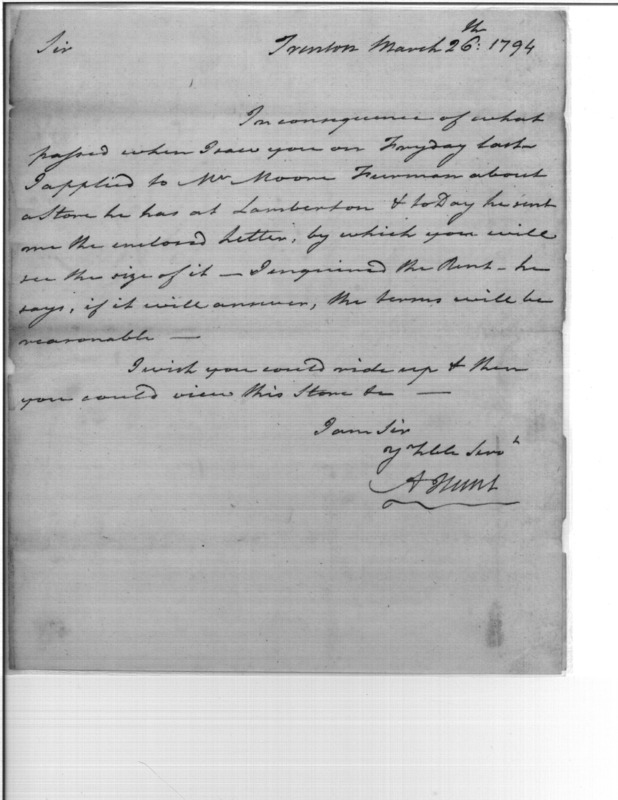 Sir Trenton March 26th: 1794
In consequence of what
passed when I saw you on Fryday last
I applied to Mr Moore Furman about
a Store he has at Lamberton & to Day he sent
me the enclosed Letter, by which you will
see the size of it — I enquired the Rent – he
says, if it will answer, the terms will be
reasonable —
I wish you could ride up & then
you could view this Store &c —
I am Sir
yr Hble Servt
A Hunt